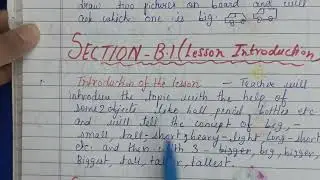 draw two pictures on board and will
ask which one is big.
SECTION-B.1(Lesson Introduction
Introduction of the lesson - Teacher will
introduce the topic with the help of
some objects like ball pencil, bottles etc
and will tell the concept of big,
small, tall-short, heavy-light, long-short
etc. and then with 3 - bigger, big, bigger,
Biggest, tall, taller, tallest.